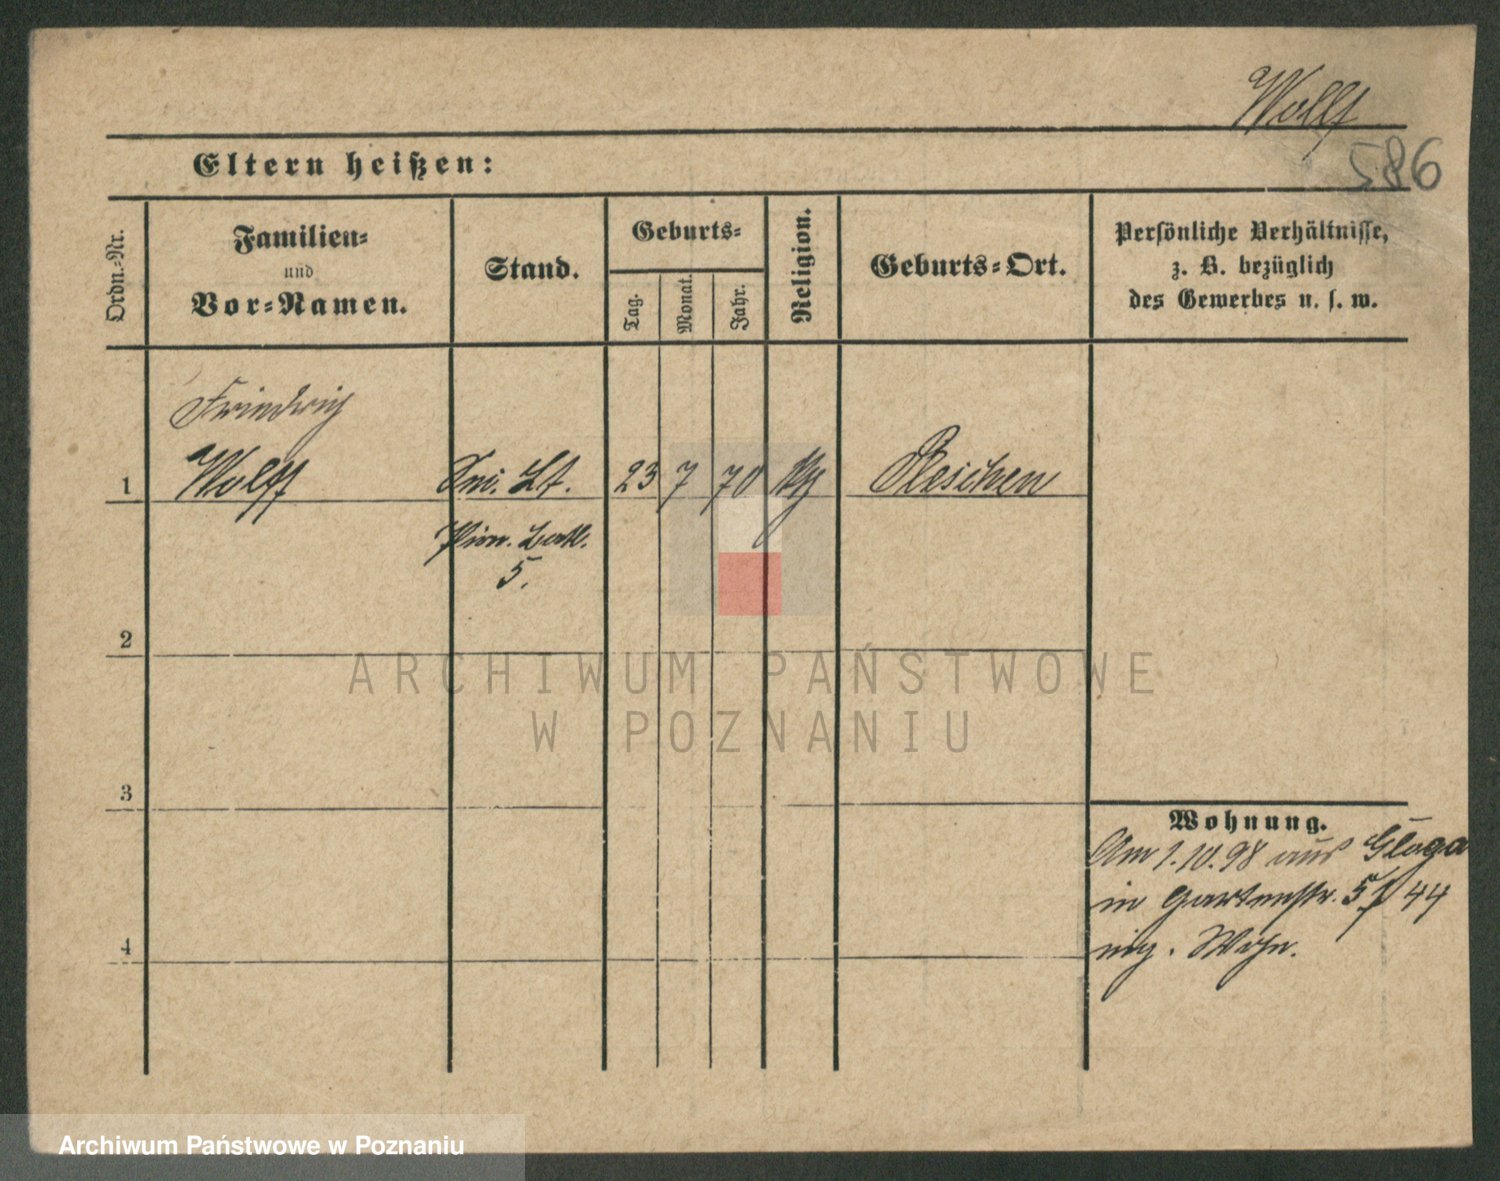 Wolff
586
Eltern heißen:
Ordn.-Nr.
Familien-
und
Vor-Namen.
Stand.
Geburts-
Tag.
Monat.
Jahr.
Religion.
Geburts-Ort.
Persönliche Verhältnisse,
z. B. bezüglich
des Gewerbes u. s. w.
Friedrich
1 Wolff Lt. 23 7 70 Reichen
Pion. Batl.
5.
2
3
4
Wohnung.
Am 1.10.98 aus Gloga
in Gartenstr. 5 44
eig. Wohn.
ARCHIWUM PAŃSTWOWE
W POZNANIU
Archiwum Państwowe w Poznaniu